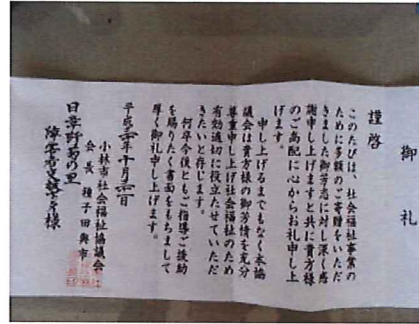 御礼
謹啓
このたびは、社会福祉事業の
ために多額のご寄贈をいただ
きました御芳志に対し深く感
謝申し上げますと共に貴方様
のご高配に心からお礼申し上
げます。
申し上げるまでもなく本協
議会は貴方様の御芳情を充分
尊重申し上げ社会福祉のため
有効適切に役立たせていただ
きたいと存じます。
何卒今後ともご指導ご援助
を賜りたく書面をもちまして
厚く御礼申し上げます。
平成 年十月 日
小林市社会福祉協議会
会長 種子田與市
日章野菊の里
様